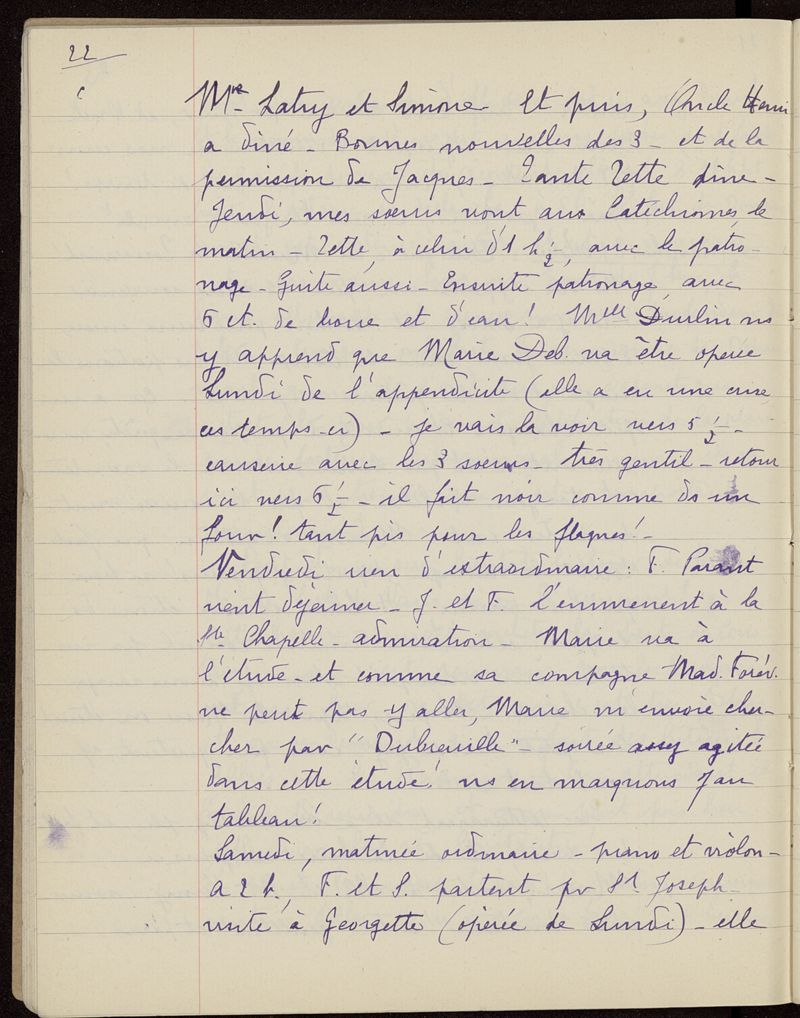 22
Mme Latry et Simone - Et puis, Oncle Henri
a dîné - Bonnes nouvelles des 3 - et de la
permission de Jacques - Tante Zette dîne -
Jeudi, mes soeurs vont aux Catéchismes, le
matin - Zette, à celui d'1 h ½, avec le patro-
nage - Guite aussi - Ensuite patronage, avec
5 ct. de boue et d'eau! Melle Durlin ns
y apprend que Marie Deb. va être opérée
Lundi de l'appendicite (elle a eu une crise
ces temps-ci) - je vais la voir vers 5 ½ -
causerie avec les 3 soeurs - très gentil - retour
ici vers 6 ½ - il fait noir comme ds un
four! tant pis pour les flaques! -
Vendredi rien d'extraordinaire : F. Parant
vient déjeuner - J. et F. l'emmènent à la
Ste Chapelle - admiration - Marie va à
l'étude - et comme sa compagne Mad. Forév.
ne peut pas y aller, Marie m'envoie cher-
cher par "Dubreuille" - soirée assez agitée
dans cette étude! ns en marquons 7 au
tableau!
Samedi, matinée ordinaire - piano et violon -
A 2 h., F. et S. partent pr St Joseph -
visite à Georgette (opérée de Lundi) - elle